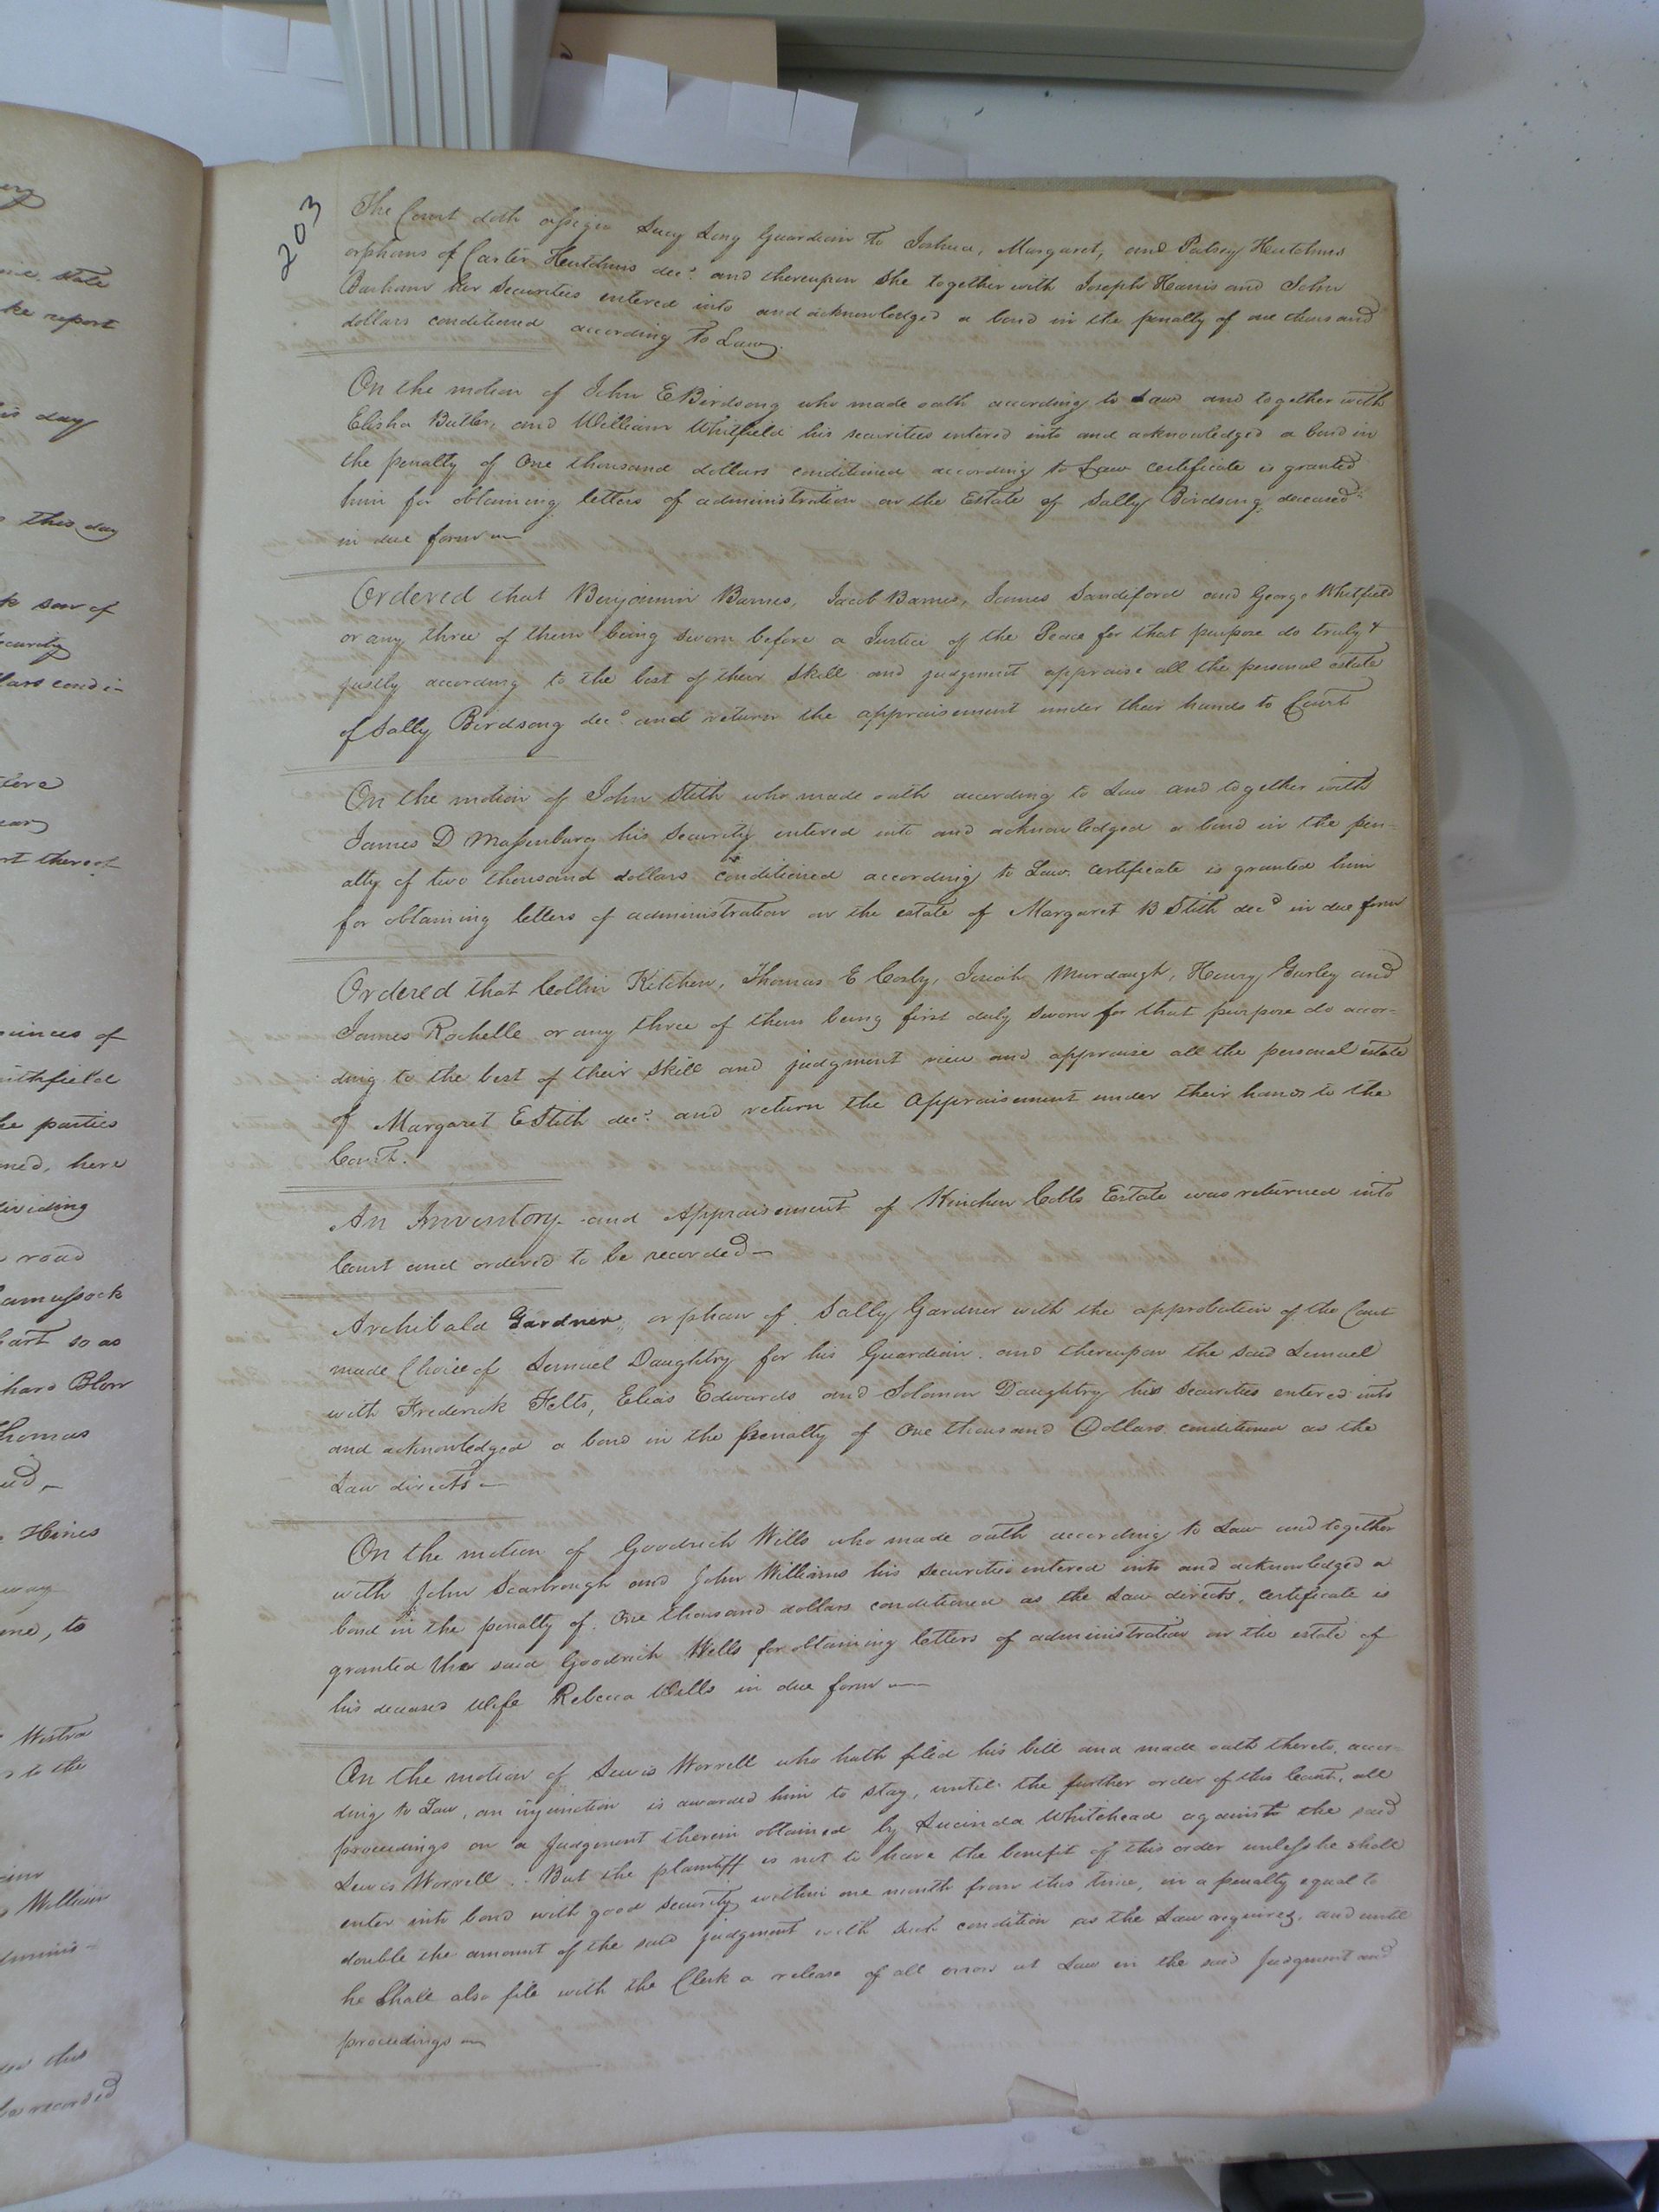 203
The Court doth assign Lucy Long Guardian to Joshua, Margaret, and Patsey Hutchins
orphans of Carter Hutchins decd. and thereupon she together with Joseph Harris and John
Barham her Securities entered into and acknowledged a bond in the penalty of one thousand
dollars conditioned according to Law.
On the motion of John E Birdsong who made oath according to Law and together with
Elisha Butler, and William Whitfield his securities entered into and acknowledged a bond in
the penalty of One thousand dollars conditioned according to Law certificate is granted
him for obtaining letters of administration on the Estate of Sally Birdsong deceased
in due form
Ordered that Benjamin Barnes, Jacob Barnes, James Sandiford and George Whitfield
or any three of them being sworn before a Justice of the Peace for that purpose do truly &
justly according to the best of their skill and judgment appraise all the personal estate
of Sally Birdsong decd. and return the appraisement under their hands to Court
On the motion of John Stith who made oath according to Law and together with
James D Massenburg his Security entered into and acknowledged a bond in the pen-
alty of two thousand dollars conditioned according to Law. certificate is granted him
for obtaining letters of administration on the estate of Margaret B Stith decd in due form
Ordered that Collin Kitchen, Thomas E Cosby, Josiah Murdaugh, Henry Gurley and
James Rochelle or any three of them being first duly sworn for that purpose do accor-
ding to the best of their skill and judgment view and appraise all the personal estate
of Margaret E Stith decd. and return the Appraisement under their hands to the
Court.
An Inventory and Appraisement of Kinchen Cobbs Estate was returned into
Court and ordered to be recorded—
Archibald Gardner, orphan of Sally Gardner with the approbation of the Court
made Choice of Lemuel Daughtry for his Guardian. and thereupon the said Lemuel
with Frederick Felts, Elias Edwards and Solomon Daughtry his Securities entered into
and acknowledged a bond in the penalty of One thousand Dollars conditioned as the
Law directs—
On the motion of Goodrich Wills who made oath according to Law and together
with John Scarbrough and John Williams his securities entered into and acknowledged a
bond in the penalty of One thousand dollars conditioned as the Law directs, certificate is
granted the said Goodrich Wills for obtaining letters of administration on the estate of
his deceased Wife Rebecca Wills in due form—
On the motion of Lewis Worrell who hath filed his bill and made oath thereto, accor-
ding to Law, an injunction is awarded him to stay, until the further order of this Court, all
proceedings on a Judgment therein obtained by Lucinda Whitehead against the said
Lewis Worrell. But the plaintiff is not to have the benefit of this order unless he shall
enter into bond with good security within one month from this time, in a penalty equal to
double the amount of the said judgment with such condition as the Law requires, and until
he Shall also file with the Clerk a release of all errors at Law in the said Judgment and
proceedings—
state
report
day
this day
son of
security
thereof
of
parties
here
dividing
road
so as
Blow
Thomas
Hines
to
to the
William
adminis-
this
recorded